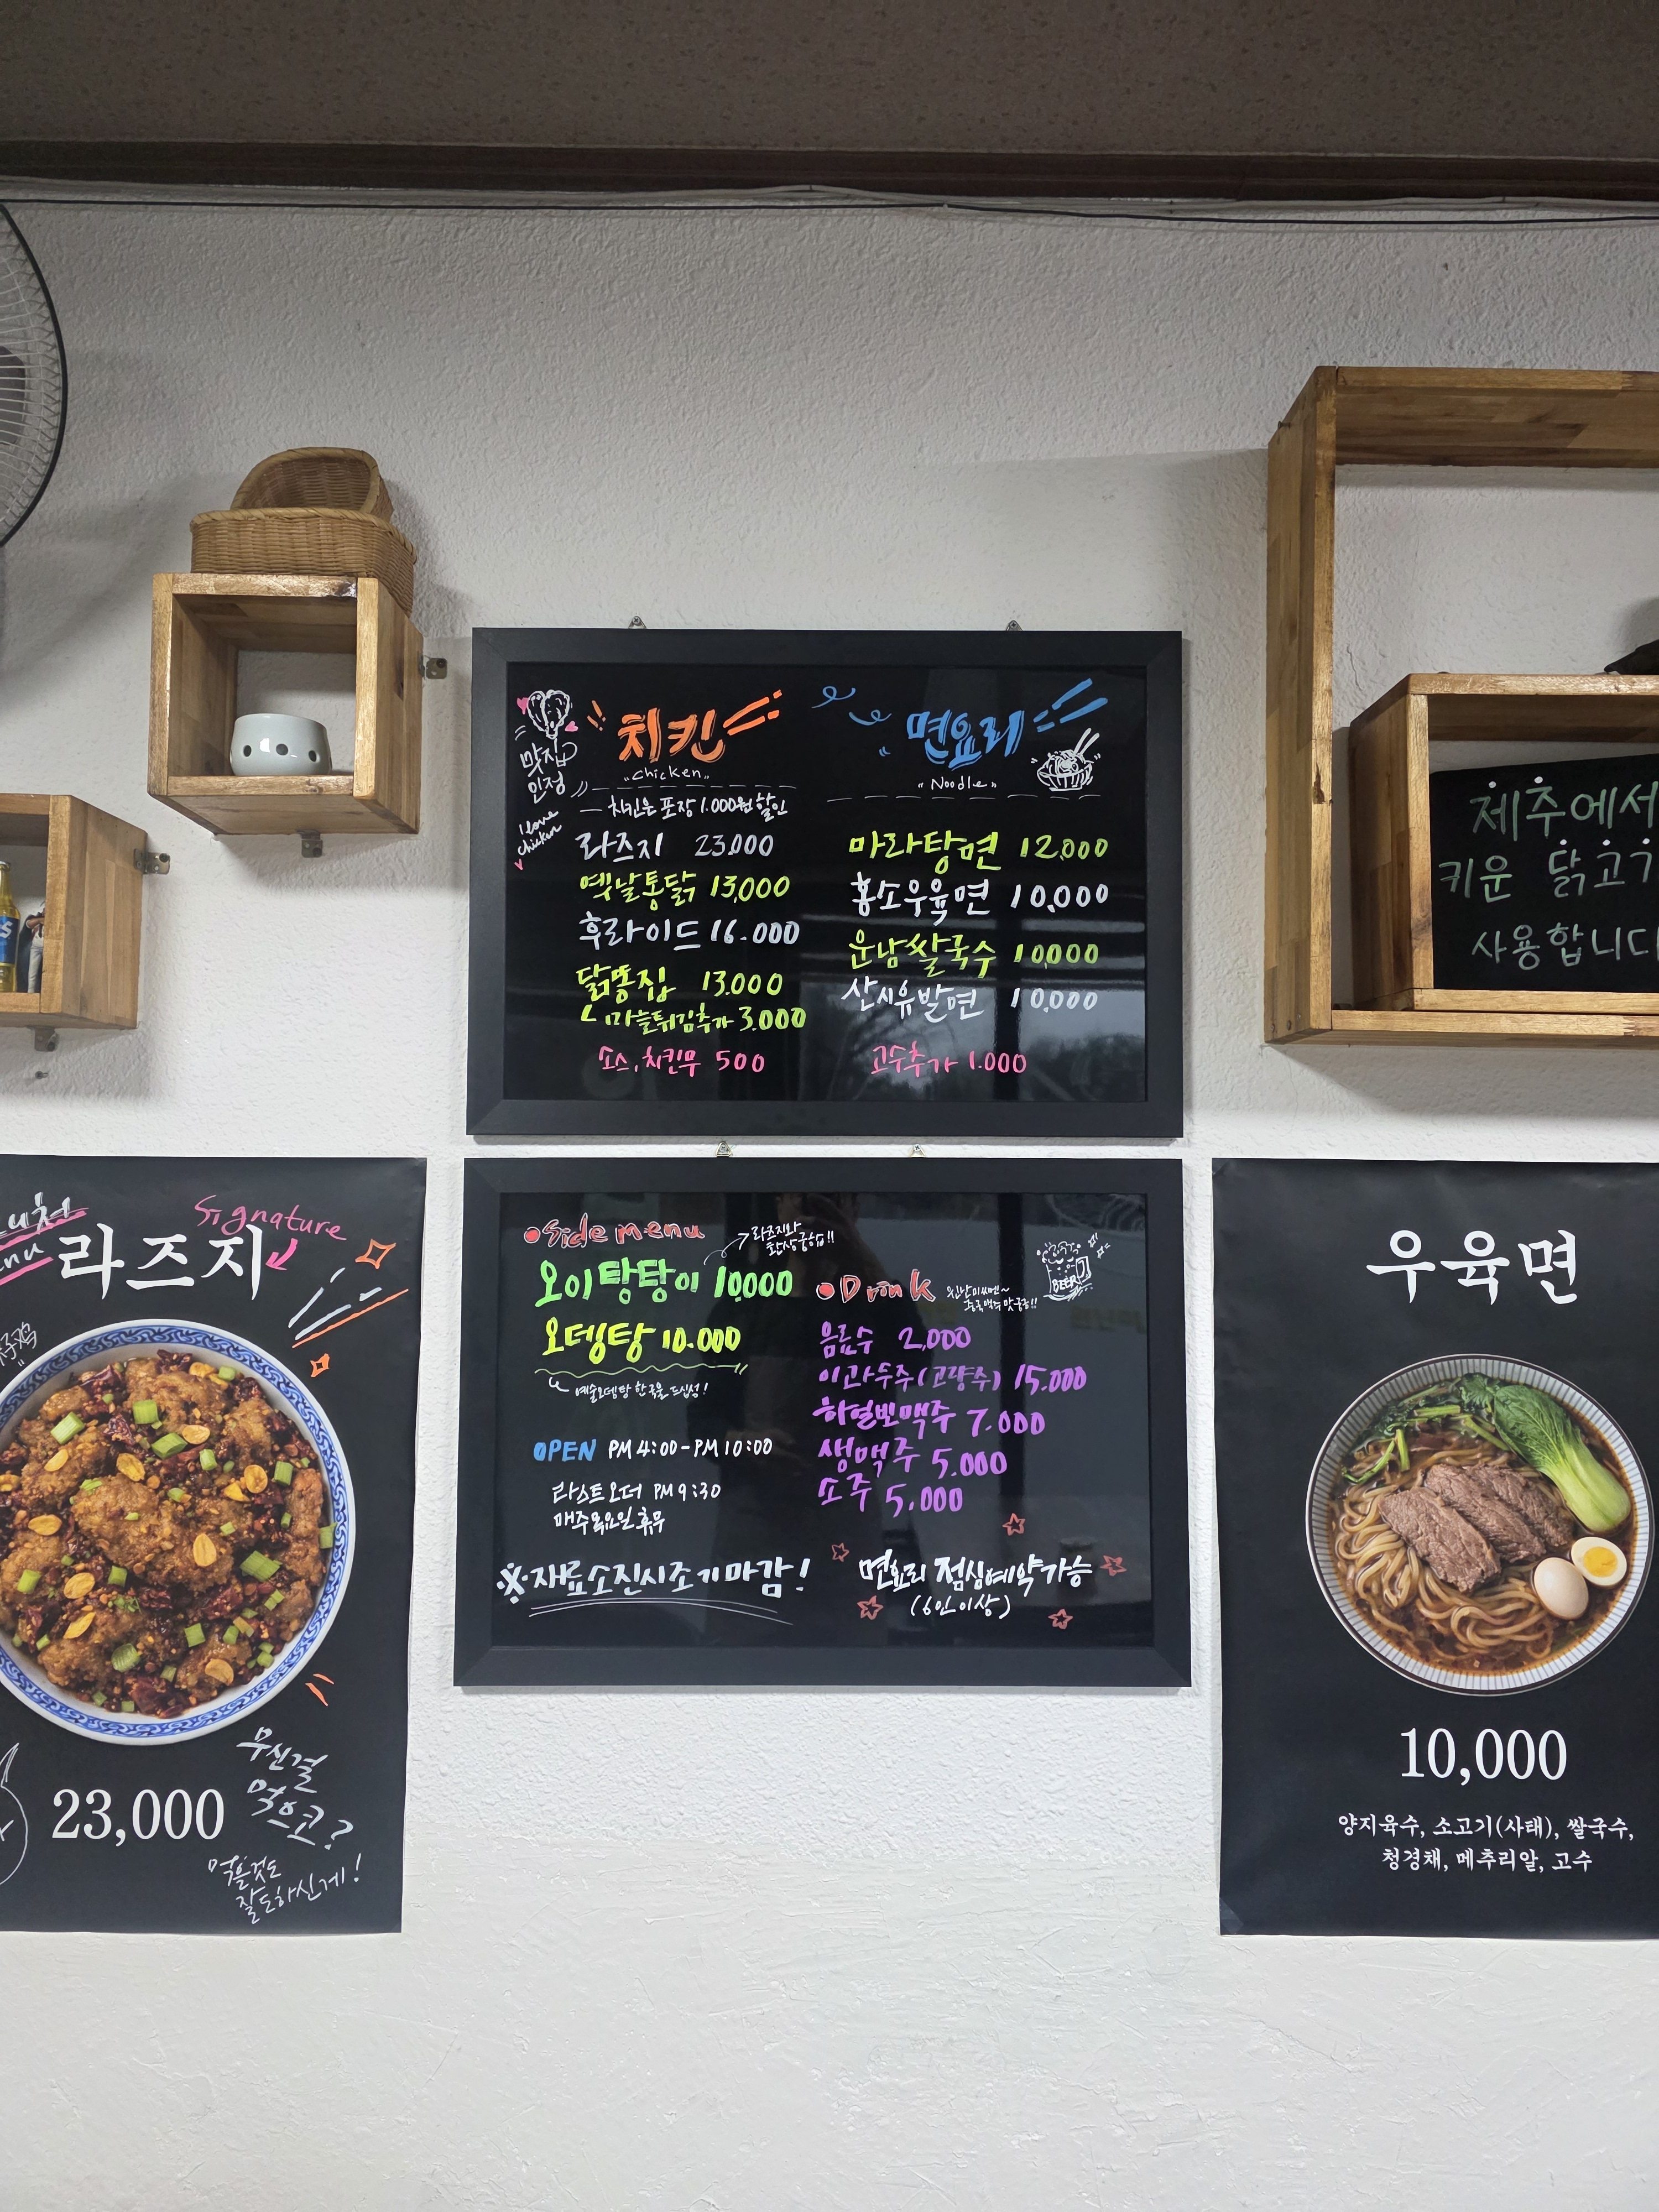 맛집
인정
I love
chicken
치킨
"chicken"
치킨은 포장 1.000원 할인
라즈지 23.000
옛날통닭 13,000
후라이드 16.000
닭똥집 13.000
ㄴ마늘튀김추가 3.000
소스,치킨무 500
면요리
"Noodle"
마라탕면 12,000
홍소우육면 10,000
운남쌀국수 10,000
산시유발면 10,000
고수추가 1.000
제주에서
키운 닭고기
사용합니다
Signature
라즈지
子鸡
23,000
무신걸
먹으코?
먹을것도
잘도하신게!
Side menu
라즈지와
환상궁합!!
오이탕탕이 10.000
오뎅탕 10.000
예술오뎅탕 한국물 드십성!
OPEN PM 4:00-PM 10:00
라스트오더 PM 9:30
매주 목요일 휴무
※재료소진시조기마감!
Drink
BEER
음료수 2,000
이과두주(고량주) 15.000
하얼빈맥주 7.000
생맥주 5.000
소주 5.000
면요리 점심예약가능
(6인이상)
우육면
10,000
양지육수, 소고기(사태), 쌀국수,
청경채, 메추리알, 고수